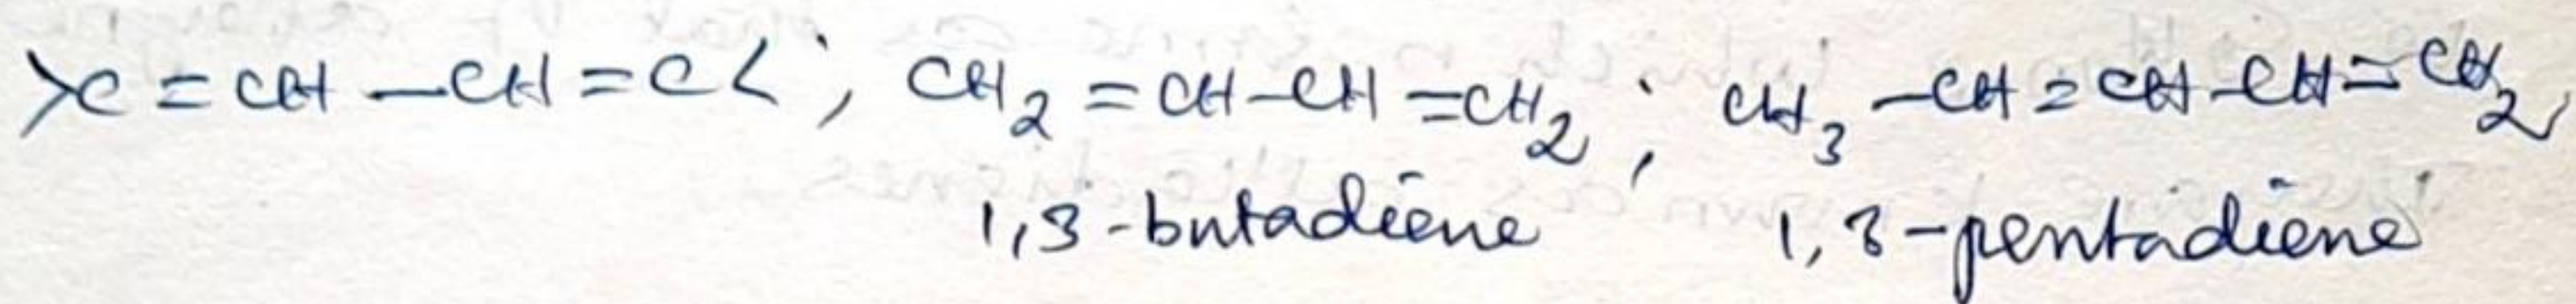 >C=CH-CH=C< ; CH₂=CH-CH=CH₂ ; CH₃-CH=CH-CH=CH₂
1,3-butadiene 1,3-pentadiene